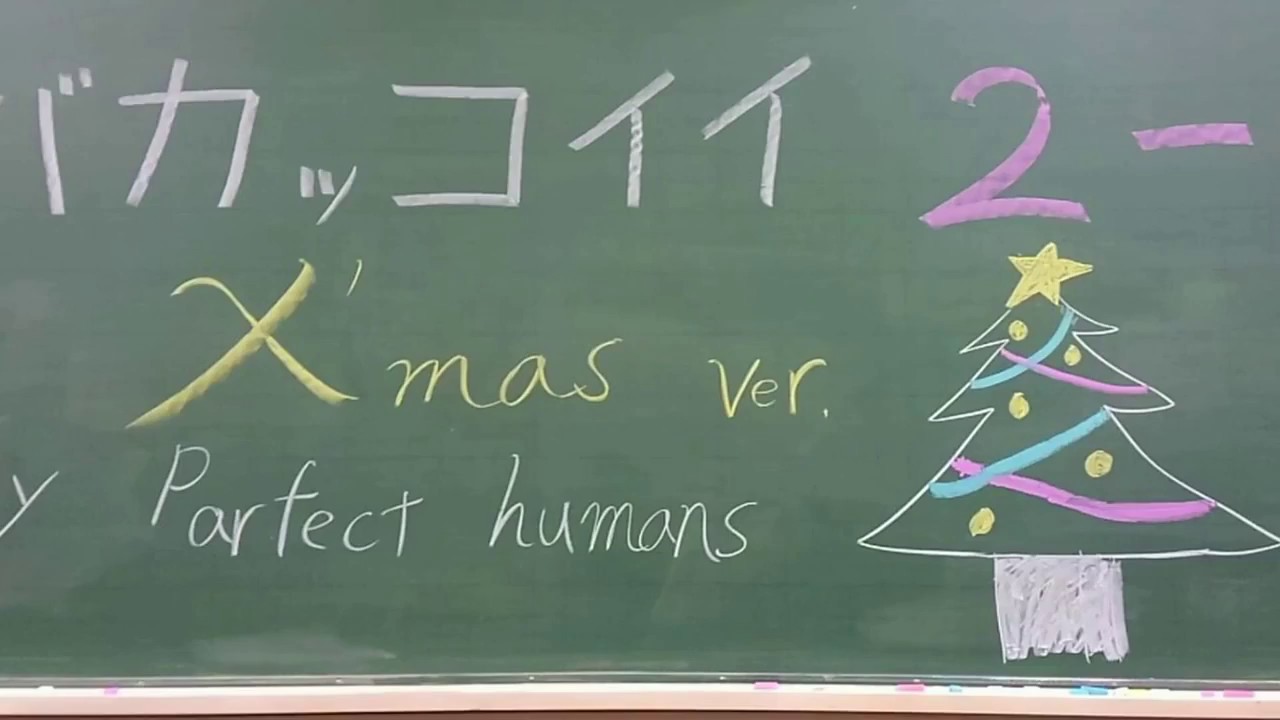 バカッコイイ 2-
X'mas ver.
y Parfect humans